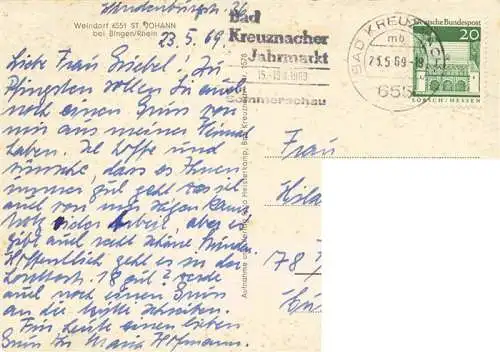 Hindenburgstr. 26
Weindorf 6551 ST. JOHANN
bei Bingen/Rhein
23.5.69.
Liebe Frau Griebel! Zu
Pfingsten sollen Sie auch
noch einen Gruss von
mir aus meiner Heimat
haben. Ich hoffe und
wünsche, dass es Ihnen
immer gut geht was ich
auch von mir sagen kann
trotz vieler Arbeit, aber es
gibt auch recht schöne Stunden
Hoffentlich geht es in der
18 gut? werde
auch noch einen Gruss
an die Leute schreiben.
Für heute einen lieben
Gruss Ihr Maria Hofmann.
Aufnahme und Verlag Foto Heisterkamp, Bad Kreuznach
Bad
Kreuznacher
Jahrmarkt
Sommerschau
BAD KREUZNACH
mb
23.5.69-18
655
Deutsche Bundespost
20
LORSCH/HESSEN
Frau
Hilda
78